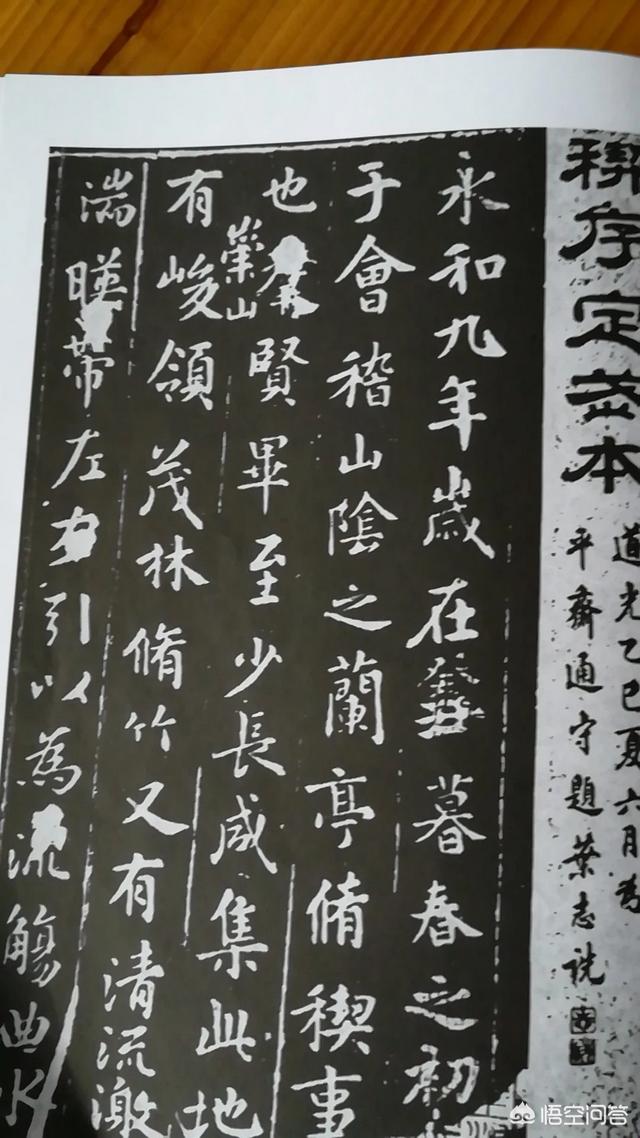 稧序定武本
道光乙巳夏六月為
平齋通守題葉志詵
永和九年歲在癸丑暮春之初
于會稽山陰之蘭亭脩稧事
也羣賢畢至少長咸集此地
有崇山峻領茂林脩竹又有清流激
湍暎帶左右引以為流觴曲水
悟空问答